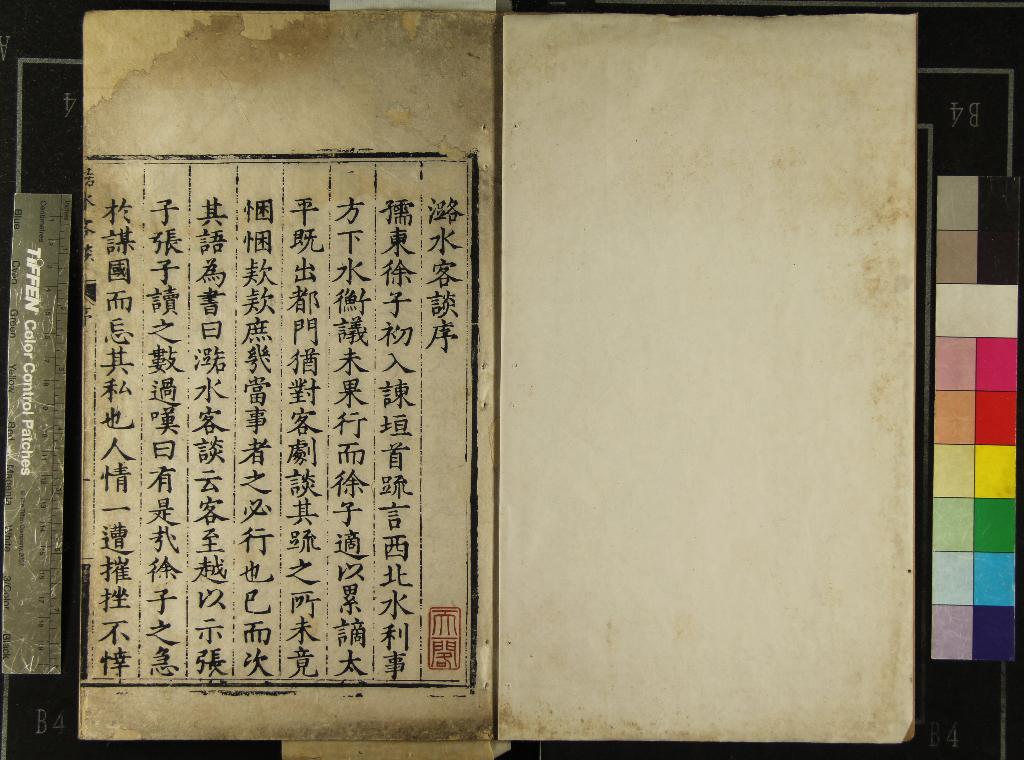 潞水客談序
孺東徐子初入諫垣首疏言西北水利事
方下水衡議未果行而徐子適以累謫太
平既出都門猶對客劇談其疏之所未竟
悃悃欵欵庶幾當事者之必行也已而次
其語為書曰潞水客談云客至越以示張
子張子讀之數過嘆曰有是㢤徐子之急
於謀國而忘其私也人情一遭摧挫不悻
水客談
序
天閣
TIFFEN Color Control Patches
Blue
Green
Yellow
Magenta
White
3/Color
Black
Centimetres
Inches
B4
B4
B4